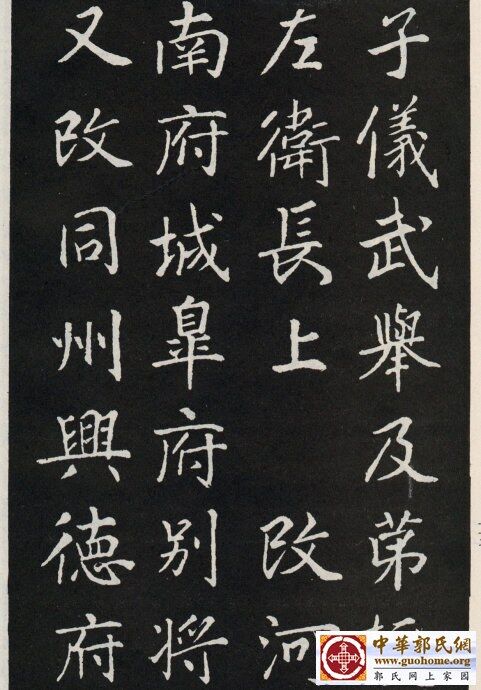 子儀武舉及苐
左衛長上 改河
南府城皐府别将
又改同州興德府
中華郭氏網
www.guohome.org
郭氏网上家园